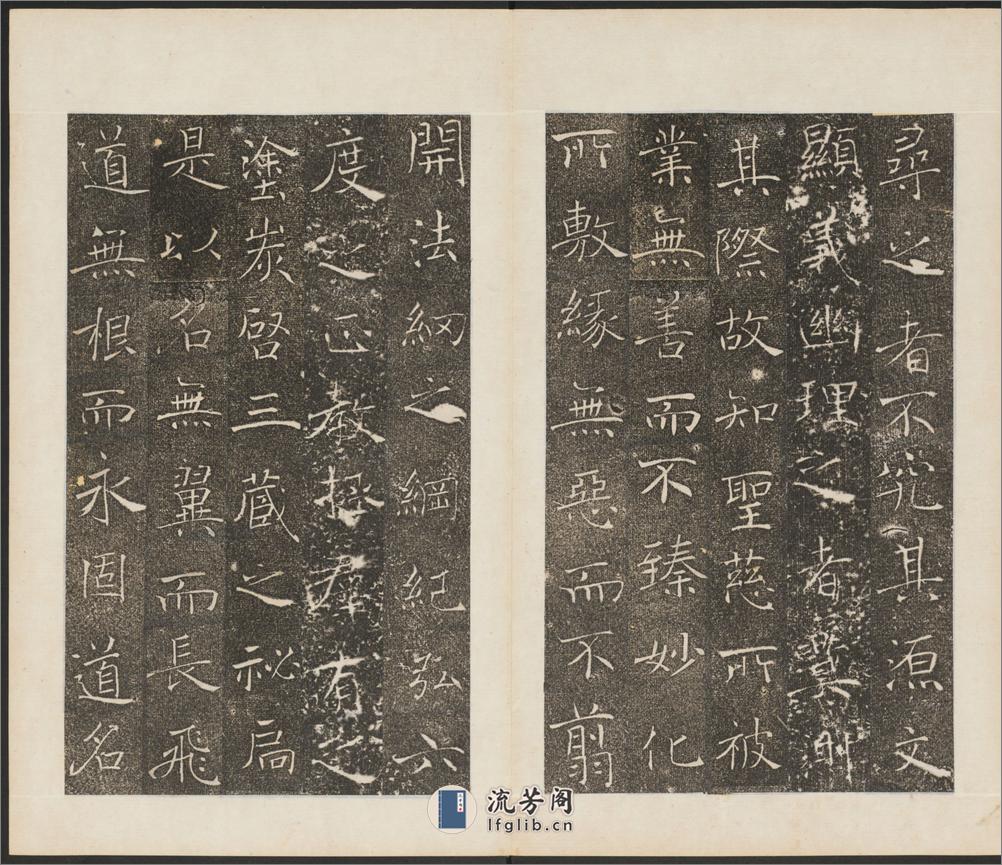 尋之者不究其源文
顯義幽理之者莫測
其際故知聖慈所被
業無善而不臻妙化
所敷緣無惡而不翦
開法網之綱紀弘六
度之正教拯群有之
塗炭啓三藏之祕扃
是以名無翼而長飛
道無根而永固道名
流芳阁
lfglib.cn